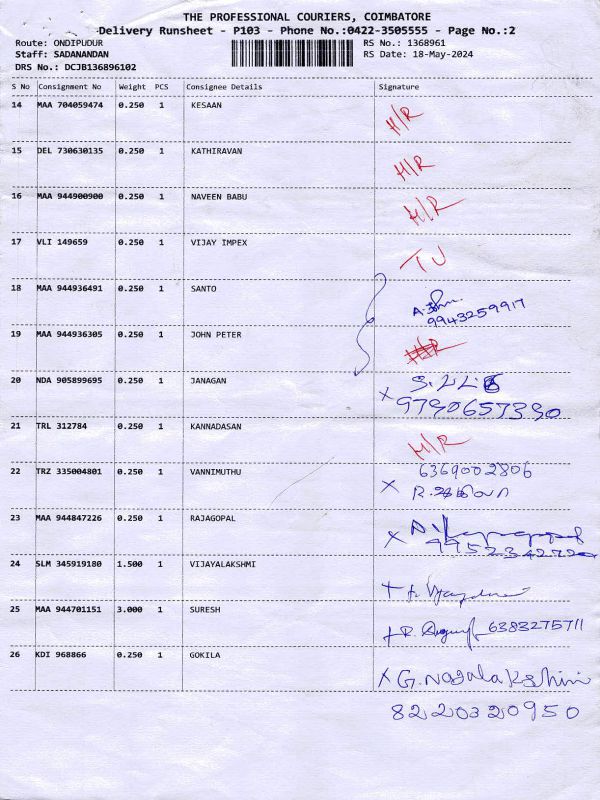 THE PROFESSIONAL COURIERS, COIMBATORE
Delivery Runsheet - P103 - Phone No.:0422-3505555 - Page No.:2
Route: ONDIPUDUR RS No.: 1368961
Staff: SADANANDAN RS Date: 18-May-2024
DRS No.: DCJB136896102
S No Consignment No Weight PCS Consignee Details Signature
14 MAA 704059474 0.250 1 KESAAN H/R
15 DEL 730630135 0.250 1 KATHIRAVAN H/R
16 MAA 944900900 0.250 1 NAVEEN BABU H/R
17 VLI 149659 0.250 1 VIJAY IMPEX TJ
18 MAA 944936491 0.250 1 SANTO
9943259917
19 MAA 944936305 0.250 1 JOHN PETER H/R
20 NDA 905899695 0.250 1 JANAGAN X
9790657390
21 TRL 312784 0.250 1 KANNADASAN H/R
22 TRZ 335004801 0.250 1 VANNIMUTHU 6369002806
X
23 MAA 944847226 0.250 1 RAJAGOPAL X
9952342720
24 SLM 345919180 1.500 1 VIJAYALAKSHMI
25 MAA 944701151 3.000 1 SURESH 6383275711
26 KDI 968866 0.250 1 GOKILA X G. Nagalakshmi
8220320950